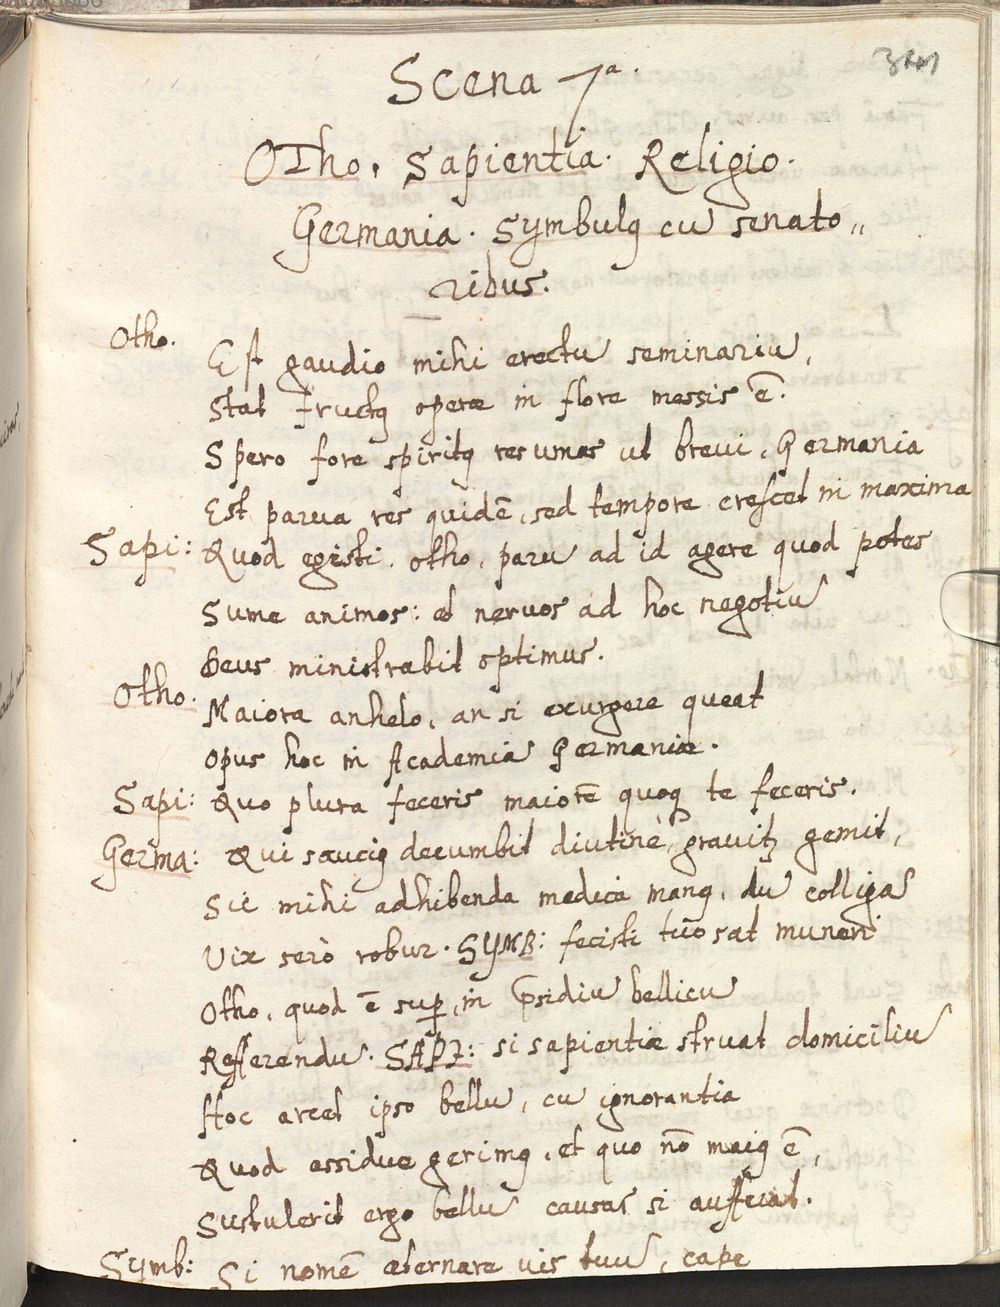 Scena 7ª.
Otho. Sapientia. Religio.
Germania. Symbulꝯ cū senato„
ribus.
Otho. Est gaudio mihi erectū seminariū,
Stat fructꝯ operæ in flore messis ē.
Spero fore spiritꝯ resumas ut brevi, Germania
Est parva res quidē, sed tempore crescet in maxima
Sapi: Quod egisti, otho, parū ad id agere quod potes
Sume animos: et nervos ad hoc negotiū
Deus ministrabit optimus.
Otho. Maiora anhelo, an si exurgere queat
Opus hoc in Academiā Germaniæ.
Sapi: Quo plura feceris maiorē quoqꝫ te feceris.
Germa: Qui sauciꝯ decumbit diutinè, gravitꝫ gemit,
Sic mihi adhibenda medica manꝯ, dū colligā
Vix serò robur. SYMB: fecisti tuo sat muneri
Otho, quod ē supꝑ, in p̄sidiū bellicū
Refferendū. SAPI: si sapientiæ struat domiciliū
Hoc arcet ipso bellū, cū ignorantia
Quod assidue gerimꝯ, et quo nō maiꝯ ē,
Sustulerit ergo bellū causas si aufferat.
Symb: Si nomē æternare vis tuū, cape